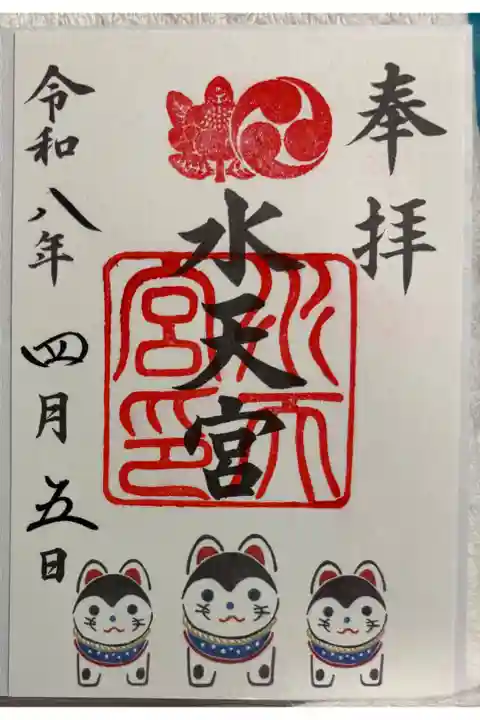 奉拝
水天宮
水天宮印
令和八年 四月五日